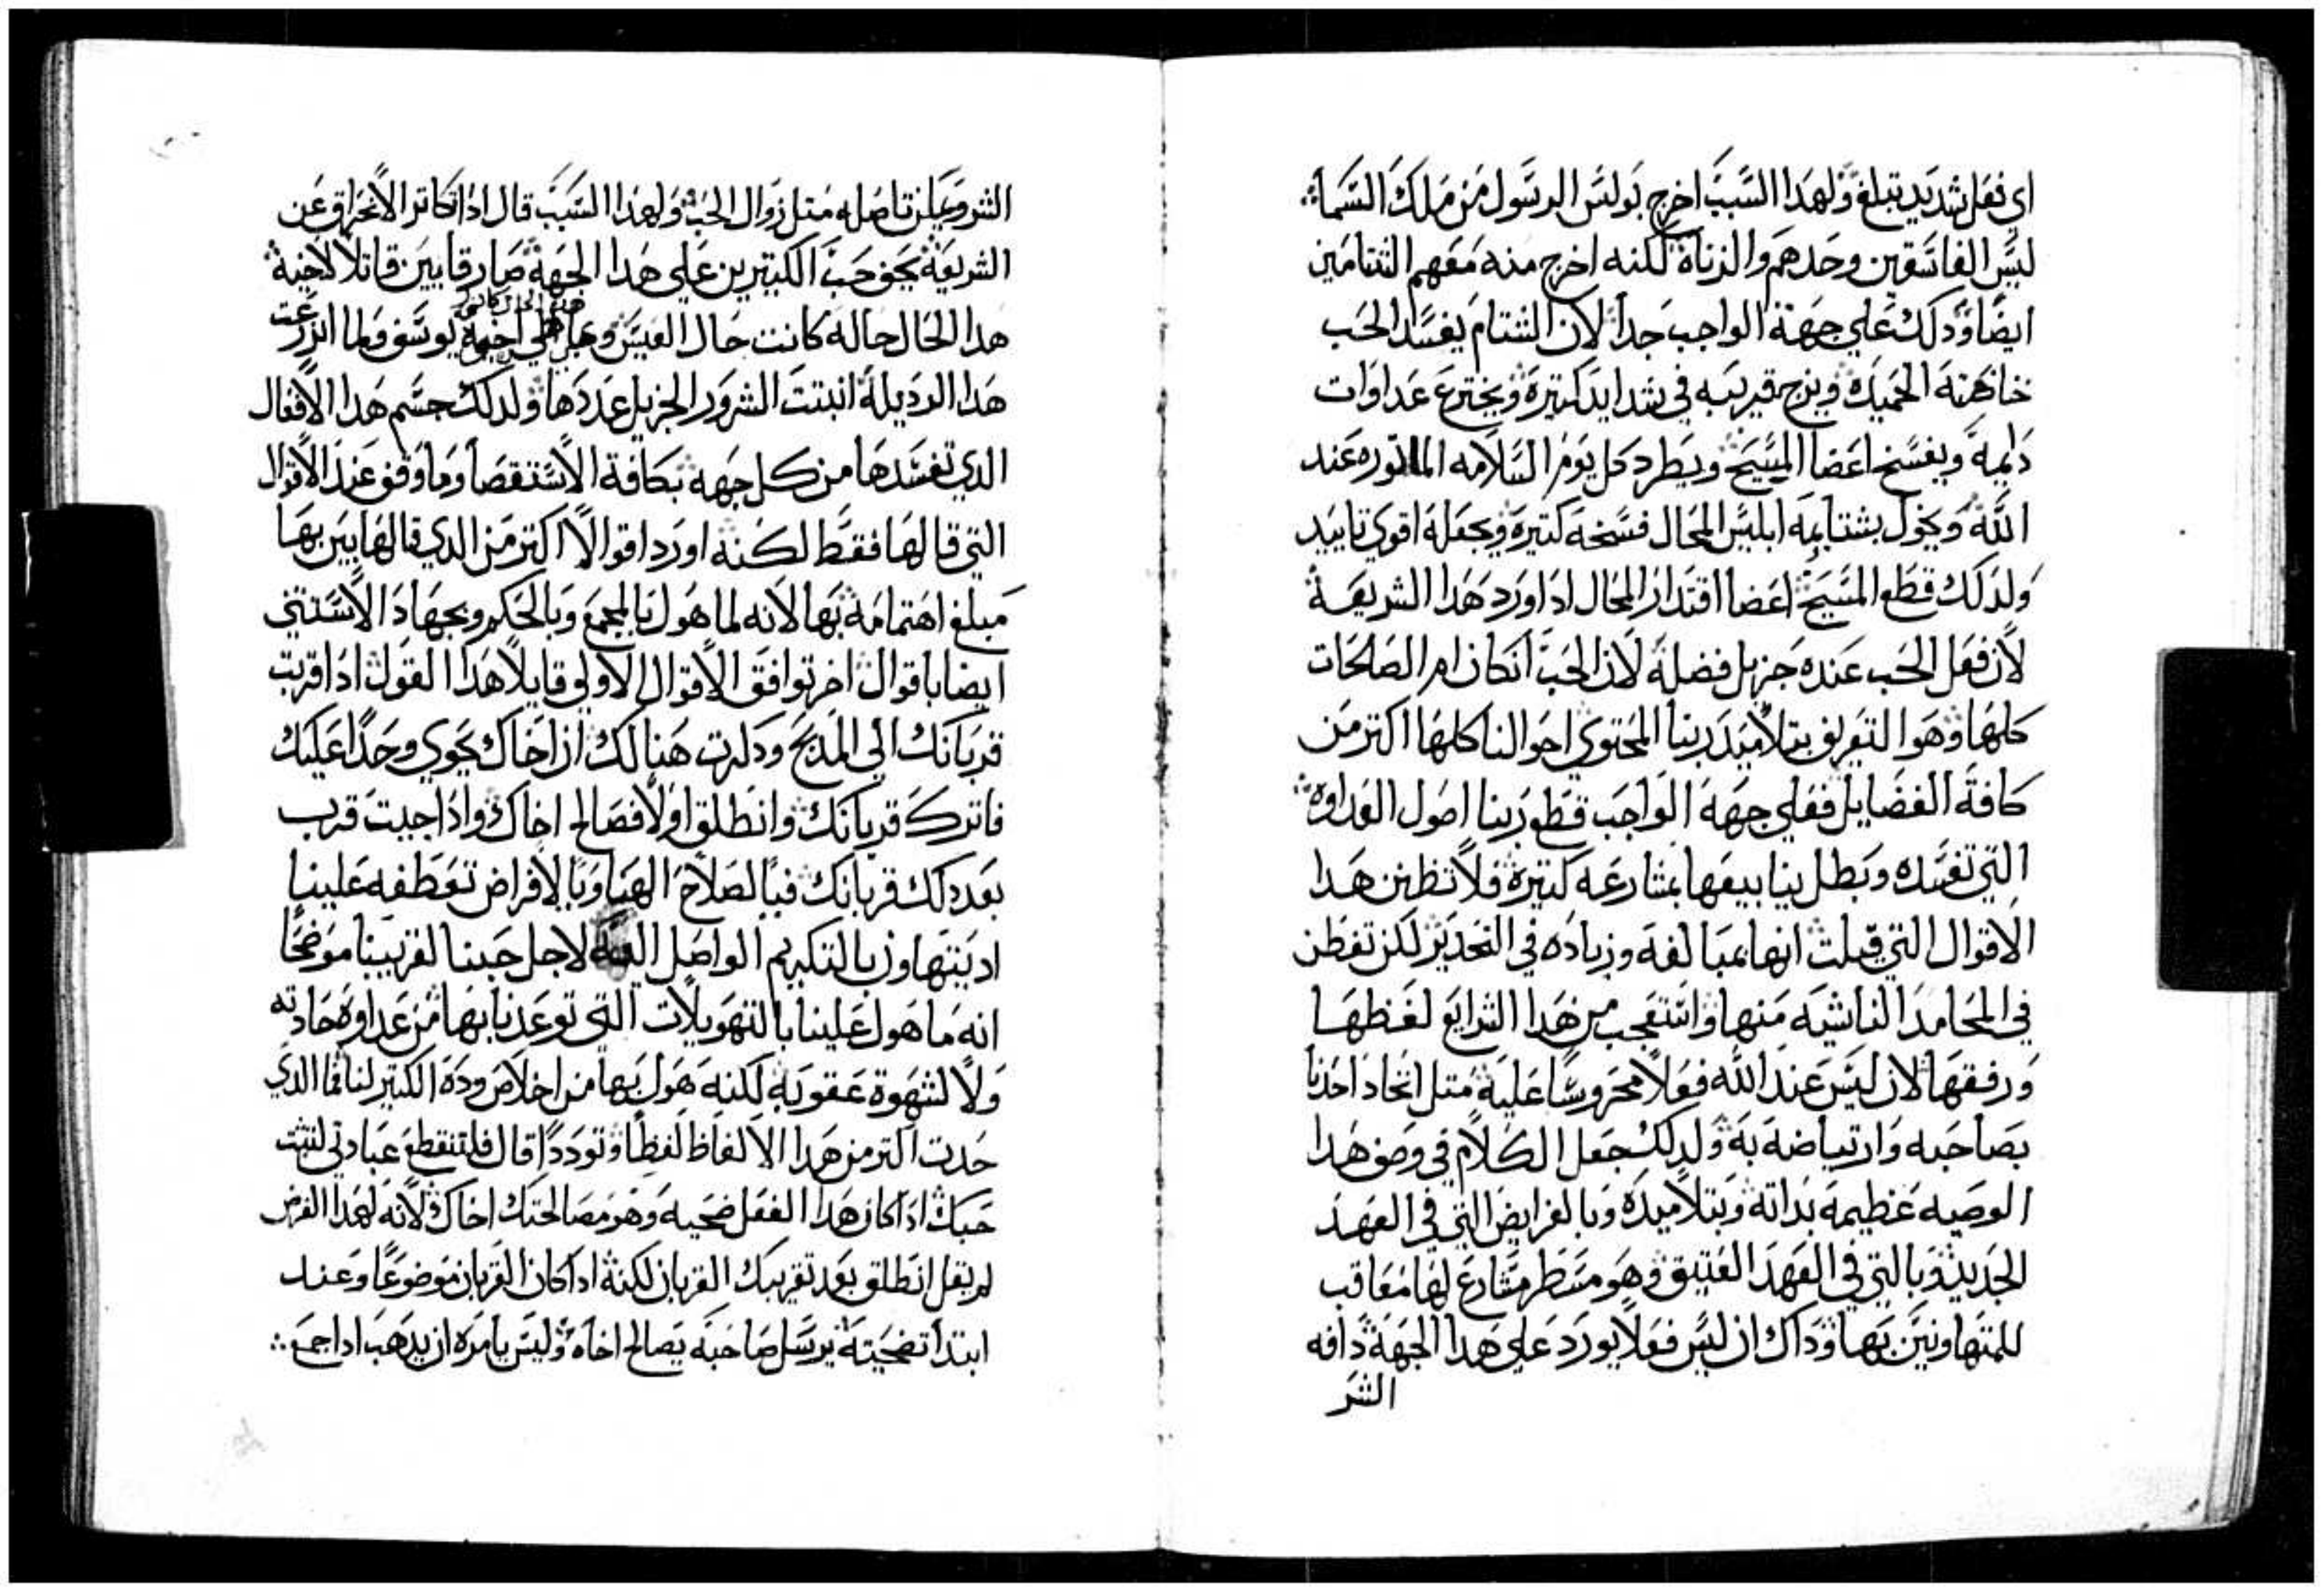 اي فعل شديد تبلغ ولهدا السبب اخرج بولس الرسول من ملك السما
ليس الفاسقين وحدهم والزناة لكنه اخرج منه معهم الشتامين
ايضا ودلك علي جهة الواجب جدا لان الشتام يفسد الحب
خاصة الحميده ويزج قريبه في شدايد كتيرة ويخترع عداوات
دايمة ويفسخ اعضا المسيح ويطرد كل يوم السلامه الماتوره عند
الله ويخول بشتايمه ابليس المحال فسخة كتيرة ويجعله اقوي تاييد
ولدلك قطع المسيح اعضا اقتدار المحال ادا ورد هدا الشريعة
لان فعل الحب عنده جزيل فضله لان الحب انكان ام الصالحات
كلها وهو التعريف بتلاميد ربنا المحتوي احوالنا كلها اكتر من
كافة الفضايل فعلي جهة الواجب قطع ربنا اصول العداوه
التي تفسده وبطل ينابيعها بمشارعه كتيرة فلا تظنن هدا
الاقوال التي قيلت انها بمبالغه وزياده في التحدير لكن تفطن
في المحامد الناشيه منها واستعجب من هدا الشرايع لغظها
ورفقها لان ليس عند الله فعلا محروسا عليه متل اتحاد احدنا
بصاحبه وارتباضه به ولدلك جعل الكلام في وصف هدا
الوصيه عظيمة بداته وبتلاميده وبالفرايض التي في العهد
الجديد وبالتي في العهد العتيق وهو مسطر مشارع لها معاقب
للمتهاونين بها وداك ان ليس فعلا يورد علي هدا الجهة دافه
الشر
الشر وعلن تاصله متل زوال الحب ولهدا السبب قال ادا تكاتر الانحراف عن
الشريعة يجف حب الكتيرين علي هدا الجهة صار قايين قاتلا لاخيه
هدا الحال حاله كانت حال العيس وعلي اخوة يوسف ولما انزرعت
هدا الرديلة انبتت الشرور الجزيل عددها ولدلك حسم هدا الافعال
الدي تفسدها من كل جهه بكافة الاستقصا وما وقف عند الاقوال
التي قالها فقط لكنه اورد اقوالا اكتر من الدي قالها يبين بها
مبلغ اهتمامه بها لانه لما هول بالمجمع وبالحكم وبجهاد الاستتني
ايضا باقوال اخر توافق الاقوال الاولي قايلا هدا القول ادا قربت
قربانك الي المدبح ودكرت هنالك ان اخاك يحوي وحدا عليك
فاترك قربانك وانطلق اولا فصالح اخاك وادا جيت قرب
بعد دلك قربانك فيا لصلاح الهنا ويا لافراض تعطفه علينا
اد يتهاون بالتكريم الواصل اليه لاجل حبنا لقريبنا موضحا
انه ما هول علينا بالتهويلات التي توعدنا بها من عداوة حادته
ولا لشهوة عقوبه لكنه هول بها من اخلاص وده الكتير لنا فما الدي
حدت اكتر من هدا الالفاظ لفظا وتوددا قال فلتنقطع عبادتي لتثبت
حبك ادا كان هدا الفعل ضحيه وهو مصالحتك اخاك لانه لهدا الغرض
لم يقل انطلق بعد تقريبك القربان لكنه ادا كان القربان موضوعا وعند
ابتدا تضحيته يرسل صاحبه يصالح اخاه وليس يامره ان يدهب ادا جمع